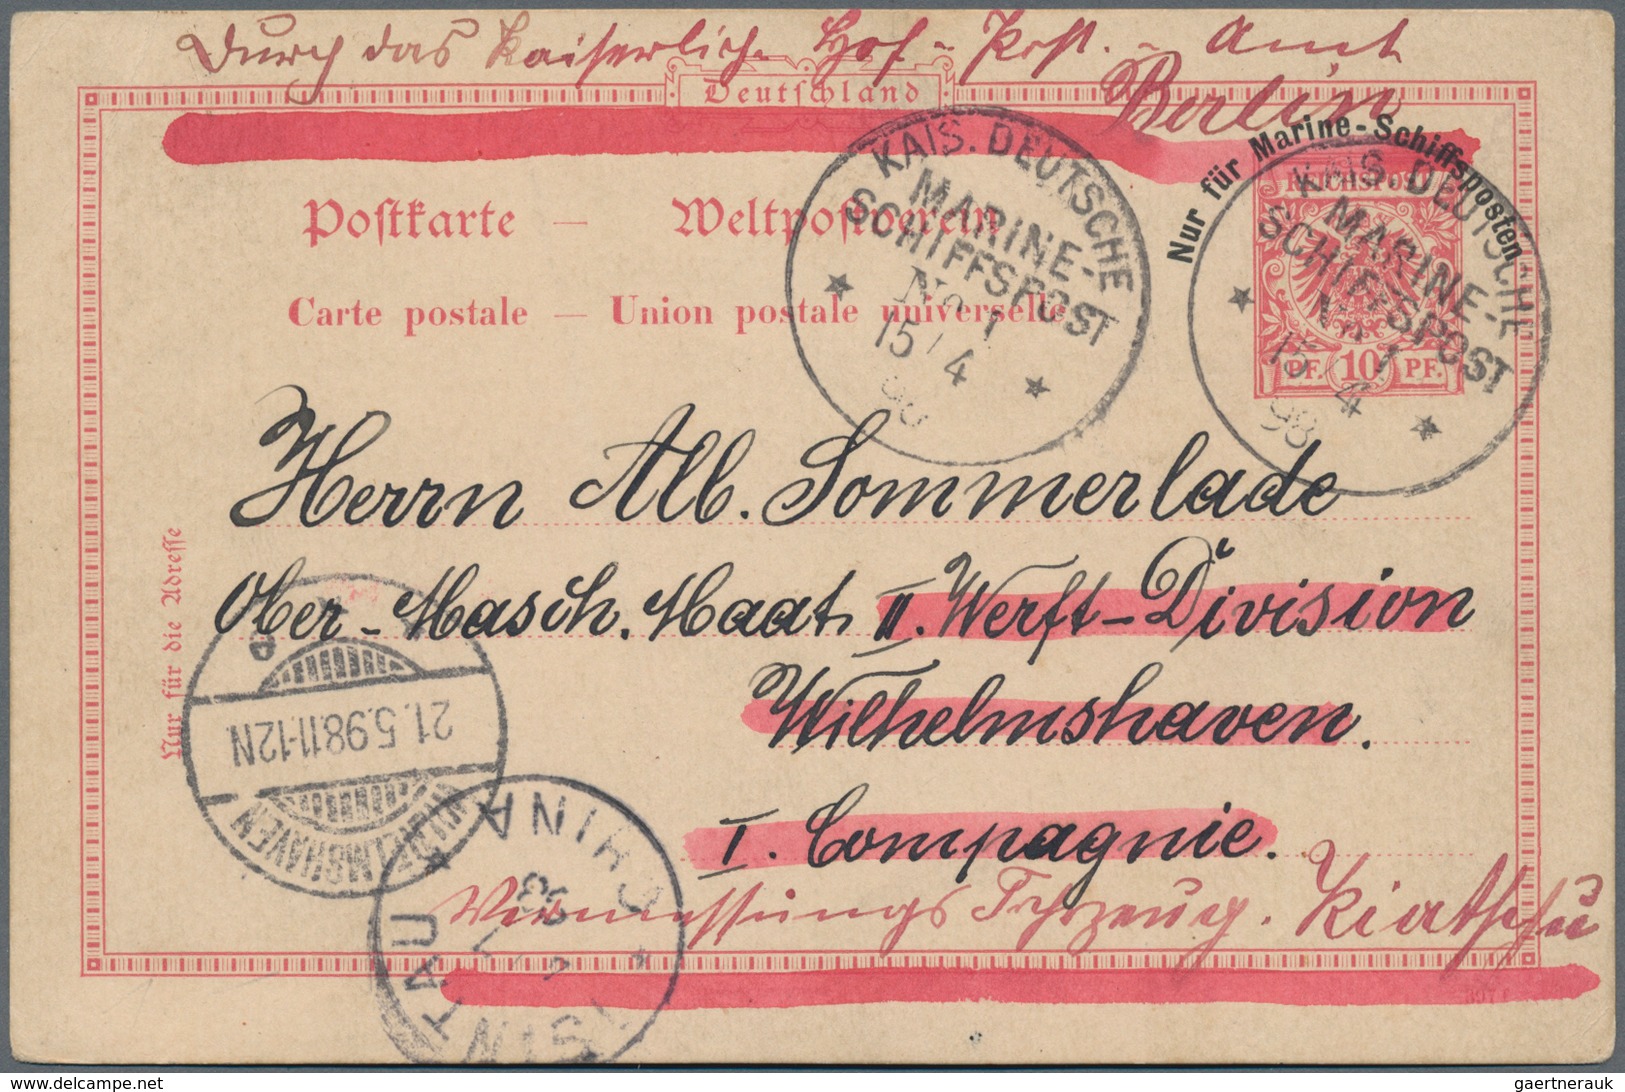 Durch das Kaiserlich. Hof-Post-Amt
Berlin
Deutschland
Nur für Marine-Schiffsposten
REICHSPOST
PF. 10 PF.
KAIS. DEUTSCHE
MARINE-
SCHIFFSPOST
No 1
15/4
98
KAIS. DEUTSCHE
MARINE-
SCHIFFSPOST
No 1
15/4
98
Postkarte — Weltpostverein
Carte postale — Union postale universelle
Herrn Alb. Sommerlade
Ober-Masch. Maat. II. Werft-Division
Wilhelmshaven.
I. Compagnie.
Vermessungs Fahrzeug. Kiatschu
Nur für die Adresse
WILHELMSHAVEN
21.5.98.11-12N
TSINTAU
CHINA
gaertnerauk